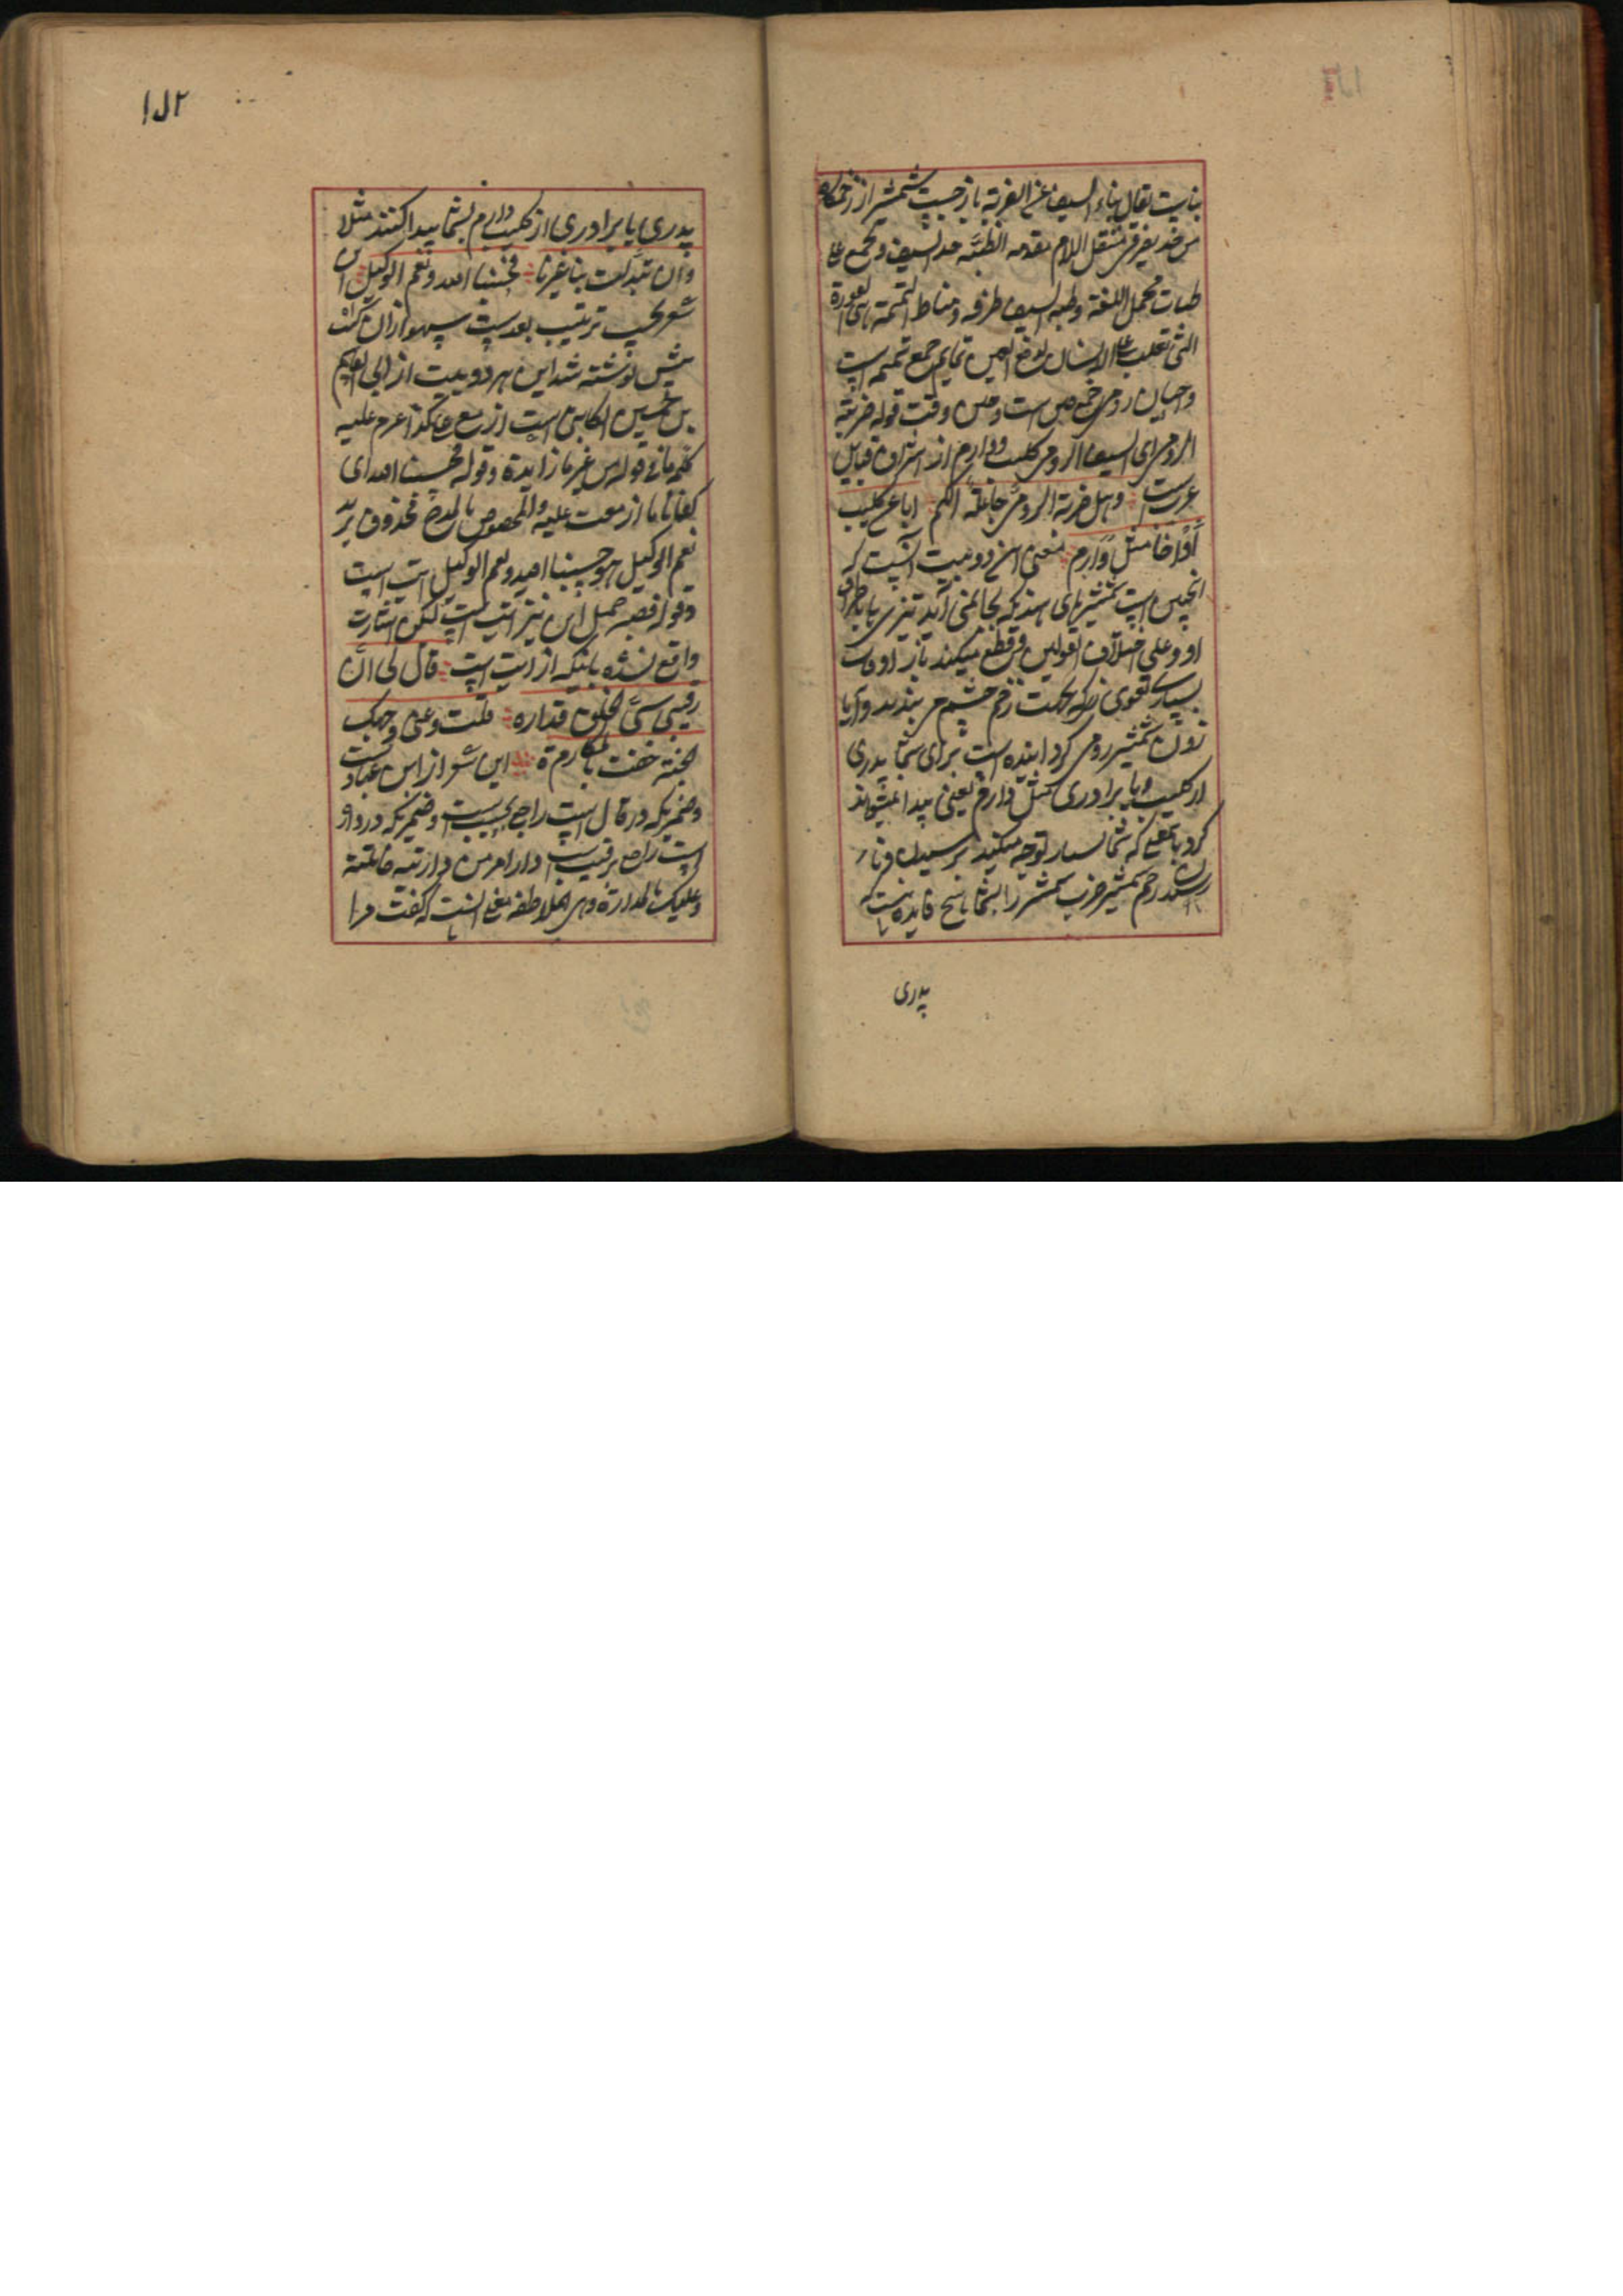 بنایت یقال نباء السیف عن الضربة باز جست شمشیر از زخمگاه
من حد یفرق منتقل اللام مقدمه الظبة حد السیف و تجمع علی
ظبات مجمل اللغة وظبة السیف طرفه ومناط التمیمة هی العوذة
التی تعلق علی الانسان لدفع العین تمایم جمع تمیمه است
واحیان رومی جمع حین است وحین وقت قوله ضربة
الرومی ای السیف الرومی کلیب و دارم از اشراف قبایل
عرب است وهل ضربة الرومی جاعلة لکم ابا عن کلیب
أو اخا مثل دارم معنی این دو بیت آنست که
انچنین است شمشیرهای هند که بجا نمی آید تیزی یا اطراف
او وعلی اختلاف القولین وقطع میکند باز اوقات
بسیار تعویذی را که بجهت زخم چشم می بندند و آیا
زدن شمشیر رومی گرداننده است برای شما پدری
از کلیب ویا برادری مثل دارم یعنی پیدا نمیتواند
کرد بمعنی که شما بسیار توجه میکنید
زخم شمشیر ضرب شمشیر را بشما هیچ فایده نیست که
پدری
۱۸۲
پدری یا برادری از کلیب ودارم بشما پیدا کنند مثلا
وان تبدلت بنا غیرنا فحسبنا الله ونعم الوکیل این
شعر بحسب ترتیب بعدست سهوا ازان
پیش نوشته شد این هر دو بیت از ابی القاسم
بن الحسین الکاتبی است ازمع علی کذا عزم علیه
کلمه ما فی قوله من غیر ما زایدة وقوله فحسبنا الله ای
کفانا ما ازمعت علیه والمخصوص بالمدح محذوف یرید
نعم الوکیل هو حسبنا الله ونعم الوکیل ایت است
وقوله فصبر جمیل این نیز ایت است لکن اشارت
واقع نشده بانکه از ایت است قال لی ان
رقیبی سیئ الخلق فداره قلت دعنی وجهک
الجنة حفت بالمکاره این شعر از ابن عبادست
وضمیریکه در قال است راجع بحبیب است وضمیریکه در داره
است راجع برقیب است دار امر من داراته خاتلته
وعلیک بالمداراة وهی الملاطفة معنی آنست که گفت مرا